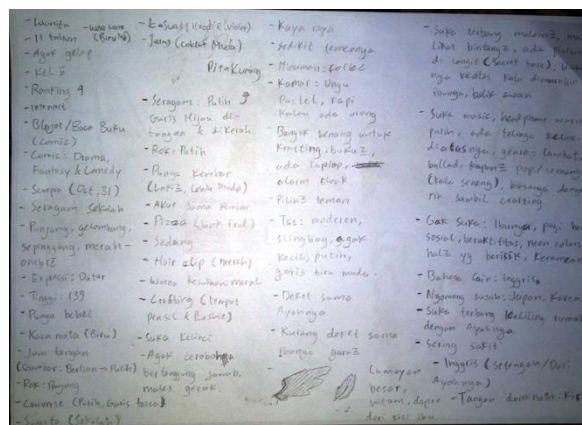 - Wanita
- 11 tahun (Biru
- Agak gelap
- Kel 5
- Ranking 4
- Internet
- Blojot/Baca Buku
(Comic)
- Comic: Drama,
Fantasy & Comedy
(Oct, 31)
- Seragam Sekolah
- Panjang, gelombang,
sepinggang, merah -
ombre
- Expressi: Datar
- Tinggi: 139
- Punya behel
- Kaca mata (Biru)
- Jam tangan
(Gambar: Berlian → Putih)
- Rok: Payung
- Converse (Putih, Garis tosca)
(Sekolah)
- Jaws (coklat Muda)
Pita Kuning
- Seragam: Putih
Garis Hijau di-
tangan & dikerah
- Rok: Putih
- Punya Kembar
(Laki2, Lebih Muda)
- Akur sama Kembar
- Pizza (Junk food)
- Sedang
- Hair clip (Merah)
- Warna kesukaan: merah
- Crafting (tempat
pensil &
- Suka Kelinci
- Agak ceroboh
bertanggung jawab,
males gerak.
- Kaya raya
- sedikit temennya
- Minuman:
- Kamar: Ungu
Pastel, rapi
Kalau ada orang
- Banyak benang untuk
Krafting, buku2,
ada laptop,
alarm
- Pilih2 teman
- Tas: moderen,
slingbag, agak
kecil, putih,
garis biru muda.
- Deket sama
Ayahnya
- Kurang deket sama
Ibunya gara2
- Suka terbang malam2,
Lihat bintang2, ada
di langit (Secret base),
nya kedip kalo dimarahin
ibunya, balik awan
- Suka music, headphone warna
putih, ada telinga kelinci
diatasnya, genre: lambat
ballad, pop/semangat
(kalo seneng), biasanya denger-
rin sambil crafting
- Gak Suka: Ibunya, pagi hari
sosial, beraktifitas, neon color
hal2 yg berisik, keramaian
- Bahasa lain: Inggris
- Ngomong susah: Japan, Korea
- Suka terbang keliling rumah
dengan Ayahnya
- Sering sakit
- Inggris (setengah/Dari
Ayahnya)
- Tangan dominan: Kiri
Lumayan
besar,
hitam, dapet
dari sisi ibu